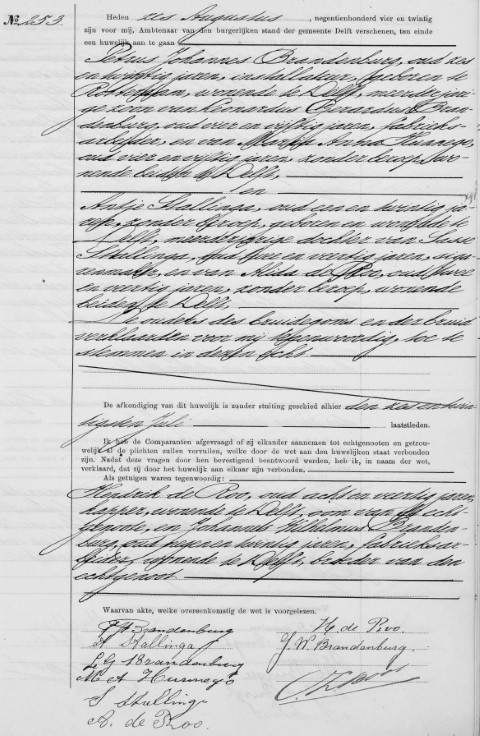 No. 253.
Heden zes Augustus, negentienhonderd vier en twintig
zijn voor mij, Ambtenaar van den burgerlijken stand der gemeente Delft verschenen, ten einde
een huwelijk aan te gaan
Petrus Johannes Brandenburg, oud zes
en twintig jaren, installateur, geboren te
Rotterdam, wonende te Delft, meerderjari-
ge zoon van Leonardus Gerardus Bran-
denburg, oud vier en vijftig jaren, fabrieks-
arbeider, en van Maria Anna
oud vier en vijftig jaren, zonder beroep, wo-
nende beiden te Delft,
en
Antje Stallinga, oud een en twintig ja-
ren, zonder beroep, geboren en wonende te
Delft, meerderjarige dochter van
Stallinga, oud en veertig jaren,
en van Alida de Roo, oud twee
en veertig jaren, zonder beroep, wonende
beiden te Delft.
De ouders des bruidegoms en der bruid
verklaarden voor mij tegenwoordig, toe te
stemmen in dezen echt.
De afkondiging van dit huwelijk is zonder stuiting geschied alhier den zes en twin-
tigsten Juli laatstleden.
Ik heb de Comparanten afgevraagd of zij elkander aannemen tot echtgenooten en getrouw-
welijk al de plichten zullen vervullen, welke door de wet aan den huwelijken staat verbonden
zijn. Nadat deze vragen door hen bevestigend beantwoord werden, heb ik, in naam der wet,
verklaard, dat zij door het huwelijk aan elkaar zijn verbonden.
Als getuigen waren tegenwoordig:
Hendrik de Roo, oud acht en veertig jaren,
kapper, wonende te Delft, oom van de echt-
genoote, en Johannes Wilhelmus Branden-
burg, oud negen en twintig jaren, fabrieksar-
beider, wonende te Delft, broeder van den
echtgenoot.
Waarvan akte, welke overeenkomstig de wet is voorgelezen.
P J Brandenburg
H. de Roo.
A Stallinga
J. W. Brandenburg.
L G Brandenburg
M A
S Stallinga
A. de Roo.